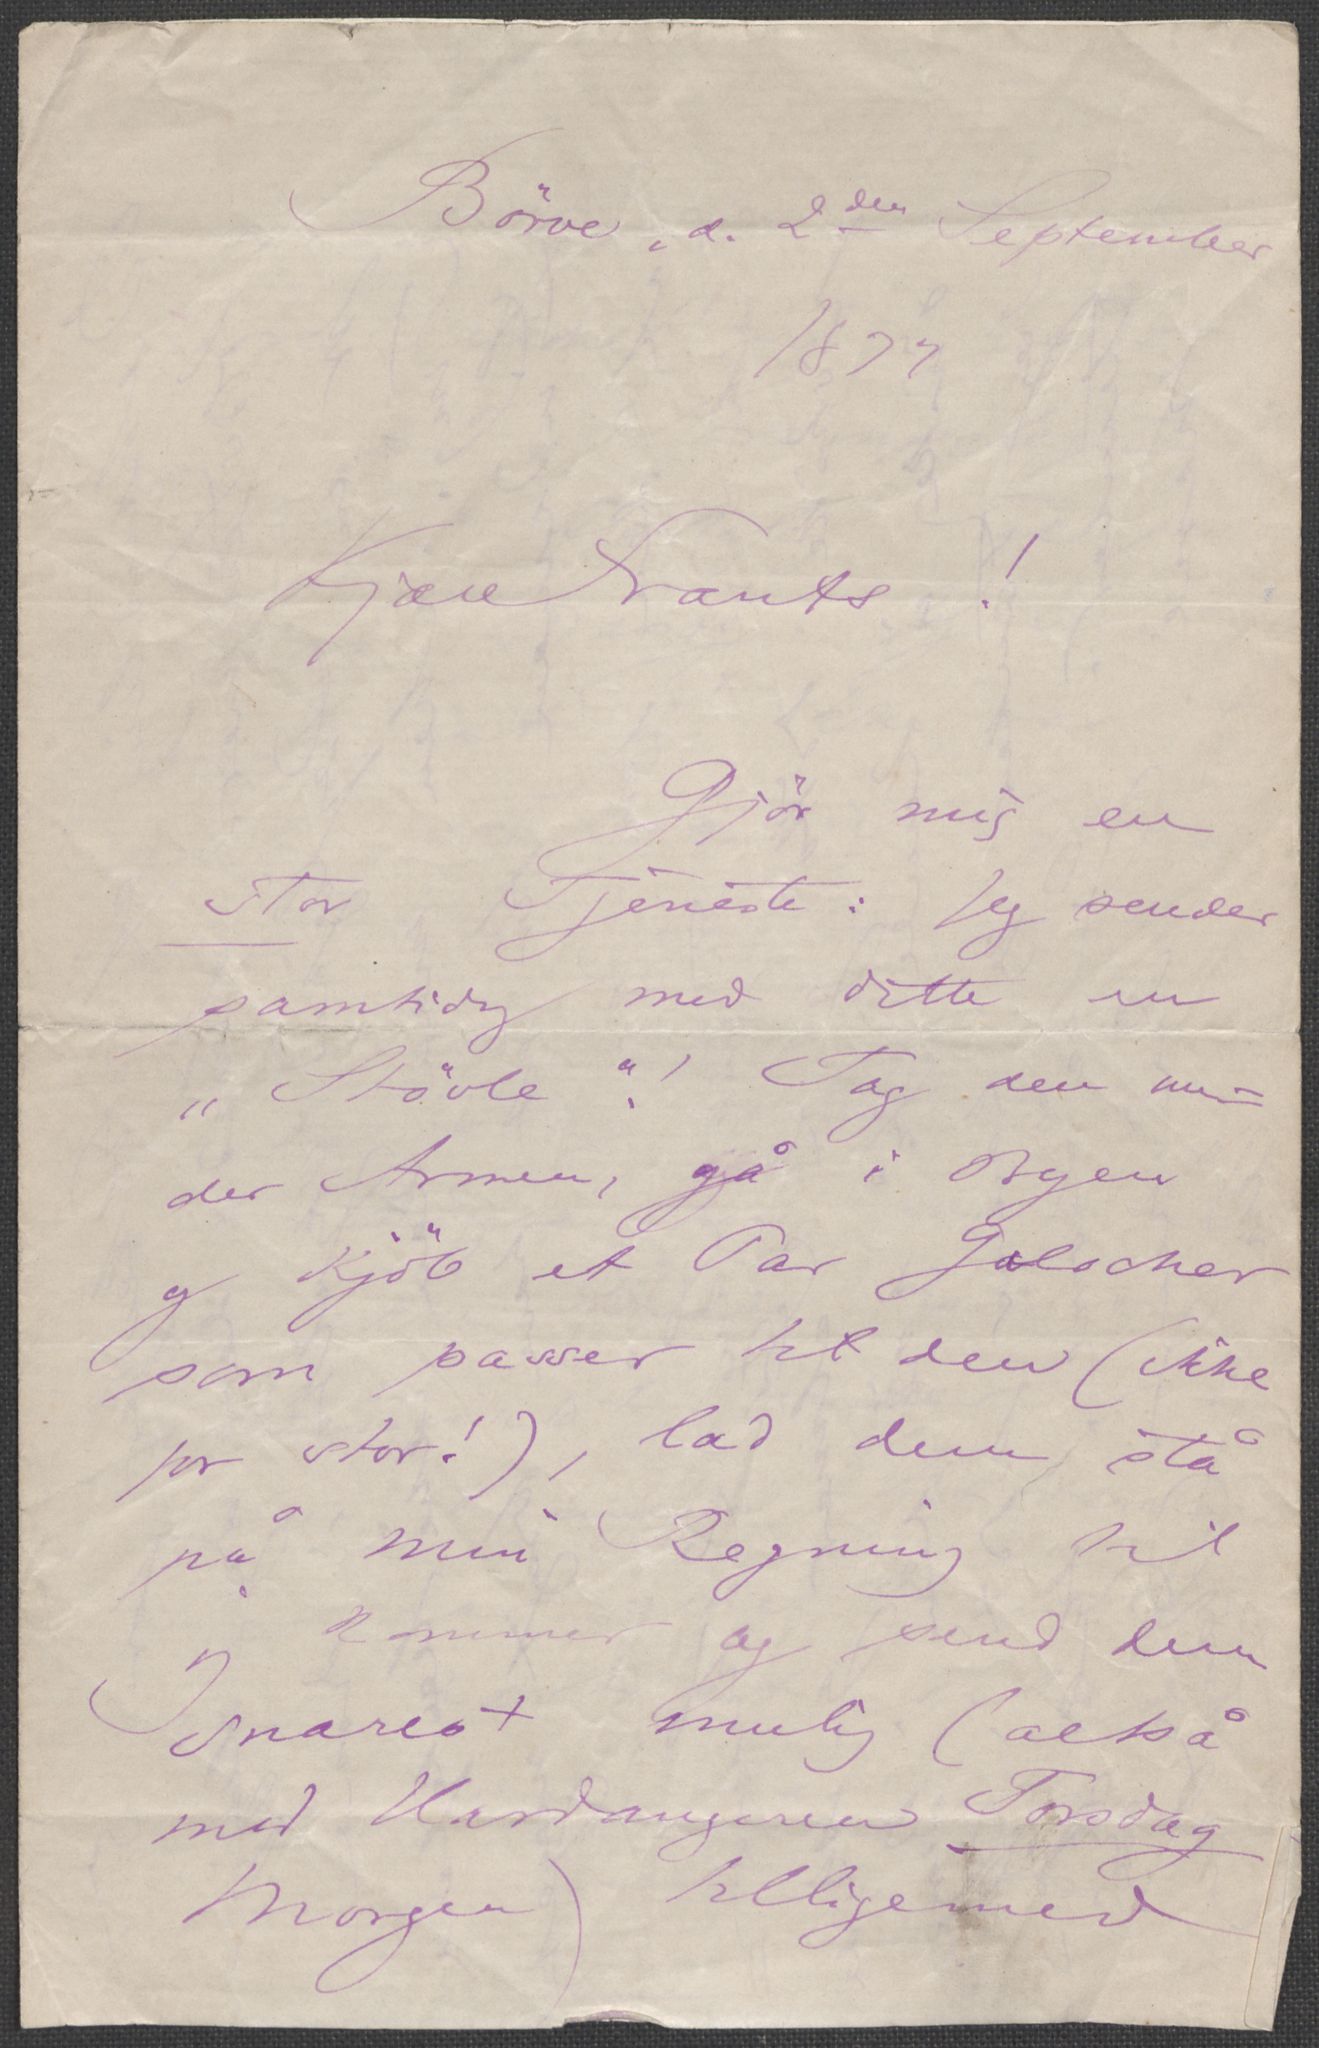 Börve, d. 2den September
1877
Kjære Frants!
Gjör mig en
stor Tjeneste: Jeg sender
samtidig med dette en
„Stövle“! Tag den un=
der Armen, gå i Byen
og kjöb et Par Galocher
som passer til den (ikke
for stor!), lad dem stå
på min Regning til
J kommer og send dem
snarest mulig (altså
med Hardangeren Torsdag
Morgen) tilligemed